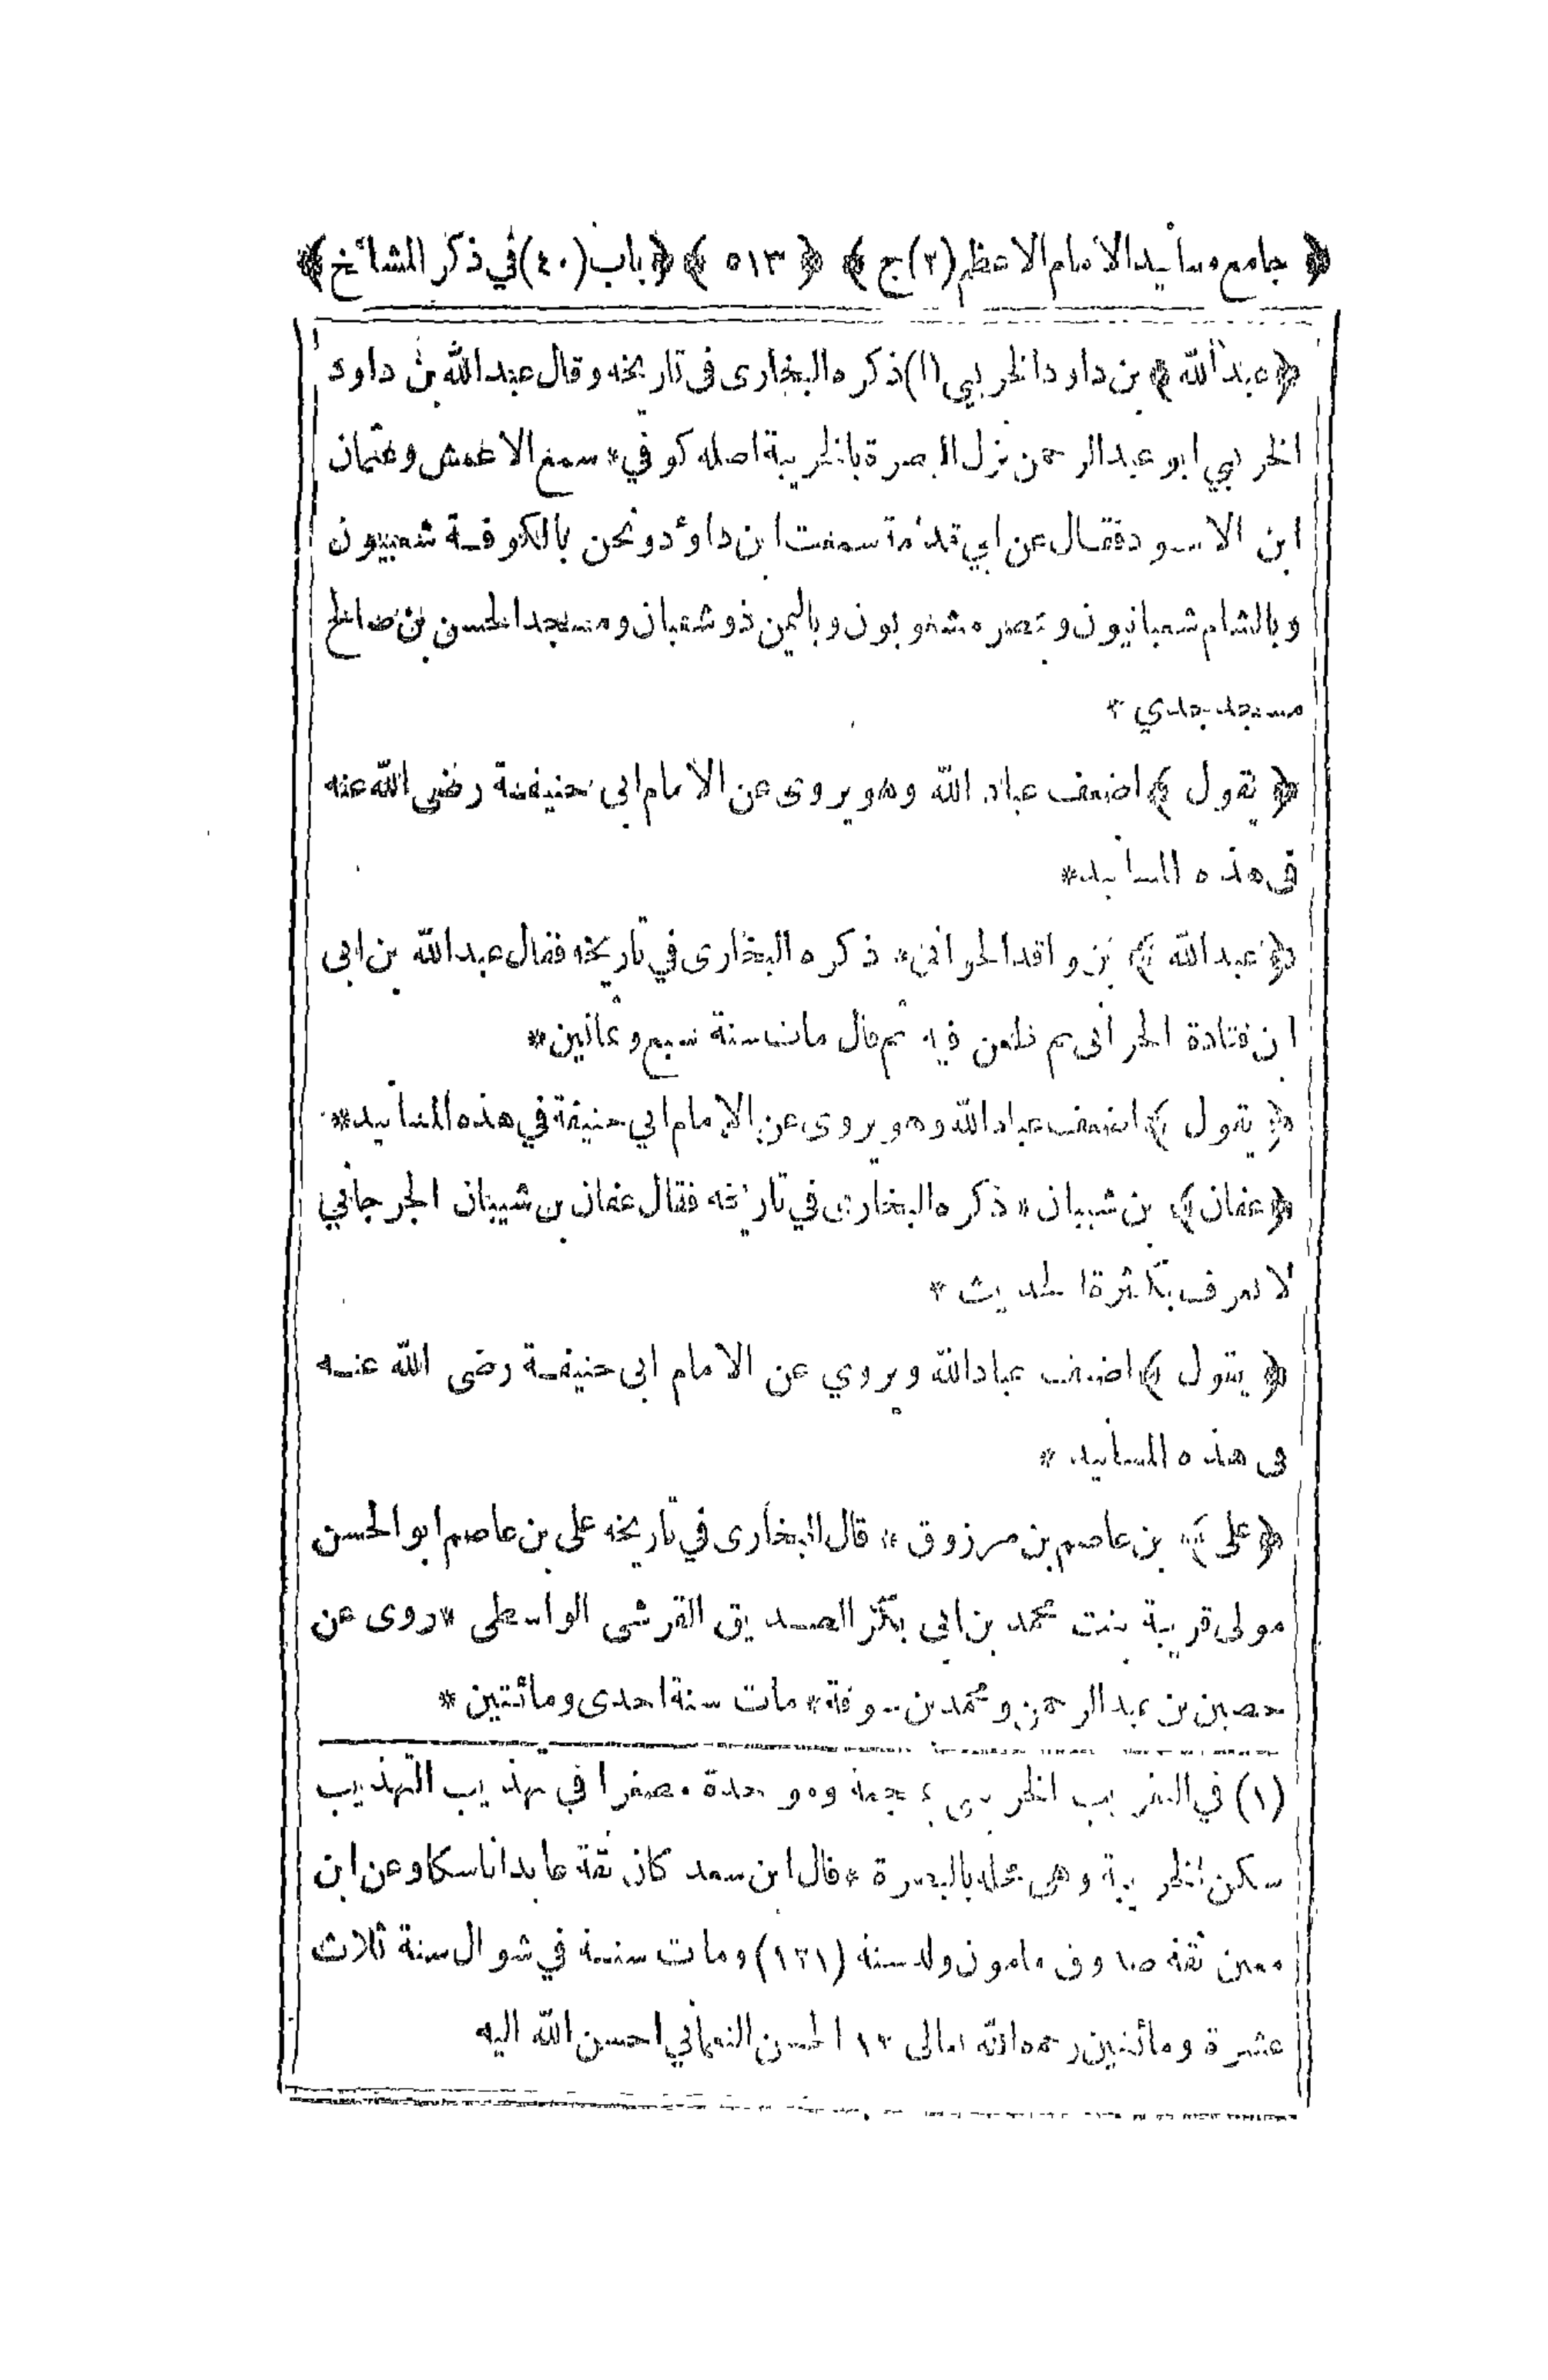 ﴿ جامع مسانيد الامام الاعظم (٢) ج ﴾ ﴿ ٥١٣ ﴾ ﴿ باب (٤٠) في ذكر المشائخ ﴾
﴿ عبد الله ﴾ بن داود الخربي (١) ذكره البخارى فى تاريخه وقال عبد الله بن داود
الخربي ابو عبد الرحمن نزل البصرة بالخريبة اصله كوفي * سمع الاعمش وعثمان
ابن الاسود فقال عن ابي قدامة سمعت ابن داؤد ونحن بالكوفة شعبيون
وبالشام شعبانيون وبمصر مشعوبون وباليمن ذو شعبان ومسجد الحسن بن صالح
مسجد جدي *
﴿ يقول ﴾ اضعف عباد الله وهو يروى عن الامام ابى حنيفة رضى الله عنه
فى هذه المسانيد *
﴿ عبد الله ﴾ بن واقد الحرانى * ذكره البخارى في تاريخه فقال عبد الله بن ابى
ابن قتادة الحرانى ثم طعن فيه ثم قال مات سنة سبع وثمانين *
﴿ يقول ﴾ اضعف عباد الله وهو يروى عن الامام ابي حنيفة في هذه المسانيد *
﴿ عفان ﴾ بن شيبان * ذكره البخارى في تاريخه فقال عفان بن شيبان الجرجاني
لا يعرف بكثرة الحديث *
﴿ يقول ﴾ اضعف عباد الله ويروي عن الامام ابى حنيفة رضى الله عنه
فى هذه المسانيد *
﴿ على ﴾ بن عاصم بن مرزوق * قال البخارى في تاريخه على بن عاصم ابو الحسن
مولى قريبة بنت محمد بن ابى بكر الصديق القرشى الواسطى * روى عن
حصين بن عبد الرحمن ومحمد بن سوقة * مات سنة احدى ومائتين *
(١) في التقريب الخريبى بمعجمة وموحدة مصغرا في تهذيب التهذيب
سكن الخريبة وهى محله بالبصرة * قال ابن سعد كان ثقة عابدا ناسكا وعن ابن
معين ثقة صدوق مامون ولد سنة (١٢١) ومات سنة في شوال سنة ثلاث
عشرة ومائتين رحمه الله تعالى ١٢ الحسن النعماني احسن الله اليه